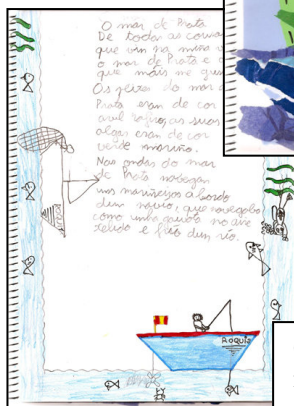 O mar de Prata
De todas as cousas
que vin na miña v
o mar de Prata é o
que máis me gus
Os peixes do mar d
Prata eran de cor
azul rojizo, as suas
algas eran de cor
verde mariño.
Nas ondas do mar
de Prata nabegan
uns mariñeiros a bordo
dun navio, que navegaba
como unha gaviota no aire
e dun río.
ROQUIÑ